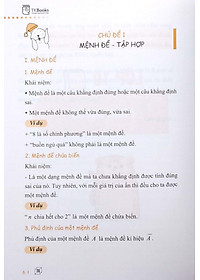 TKBooks
CHỦ ĐỀ 1
MỆNH ĐỀ - TẬP HỢP
I. MỆNH ĐỀ
1. Mệnh đề
Khái niệm:
• Mệnh đề là một câu khẳng định đúng hoặc một câu khẳng
định sai.
• Một mệnh đề không thể vừa đúng, vừa sai.
Ví dụ
+ "8 là số chính phương" là một mệnh đề.
+ "buồn ngủ quá" không phải là mệnh đề.
2. Mệnh đề chứa biến
Khái niệm:
- Là một dạng mệnh đề mà ta chưa khẳng định được tính đúng
sai của nó. Tuy nhiên, với mỗi giá trị của ẩn thì đều cho ta được
một mệnh đề.
Ví dụ
"n chia hết cho 2" là một mệnh đề chứa biến.
3. Phủ định của một mệnh đề
Phủ định của một mệnh đề A là mệnh đề kí hiệu A̅.
Ví dụ
6